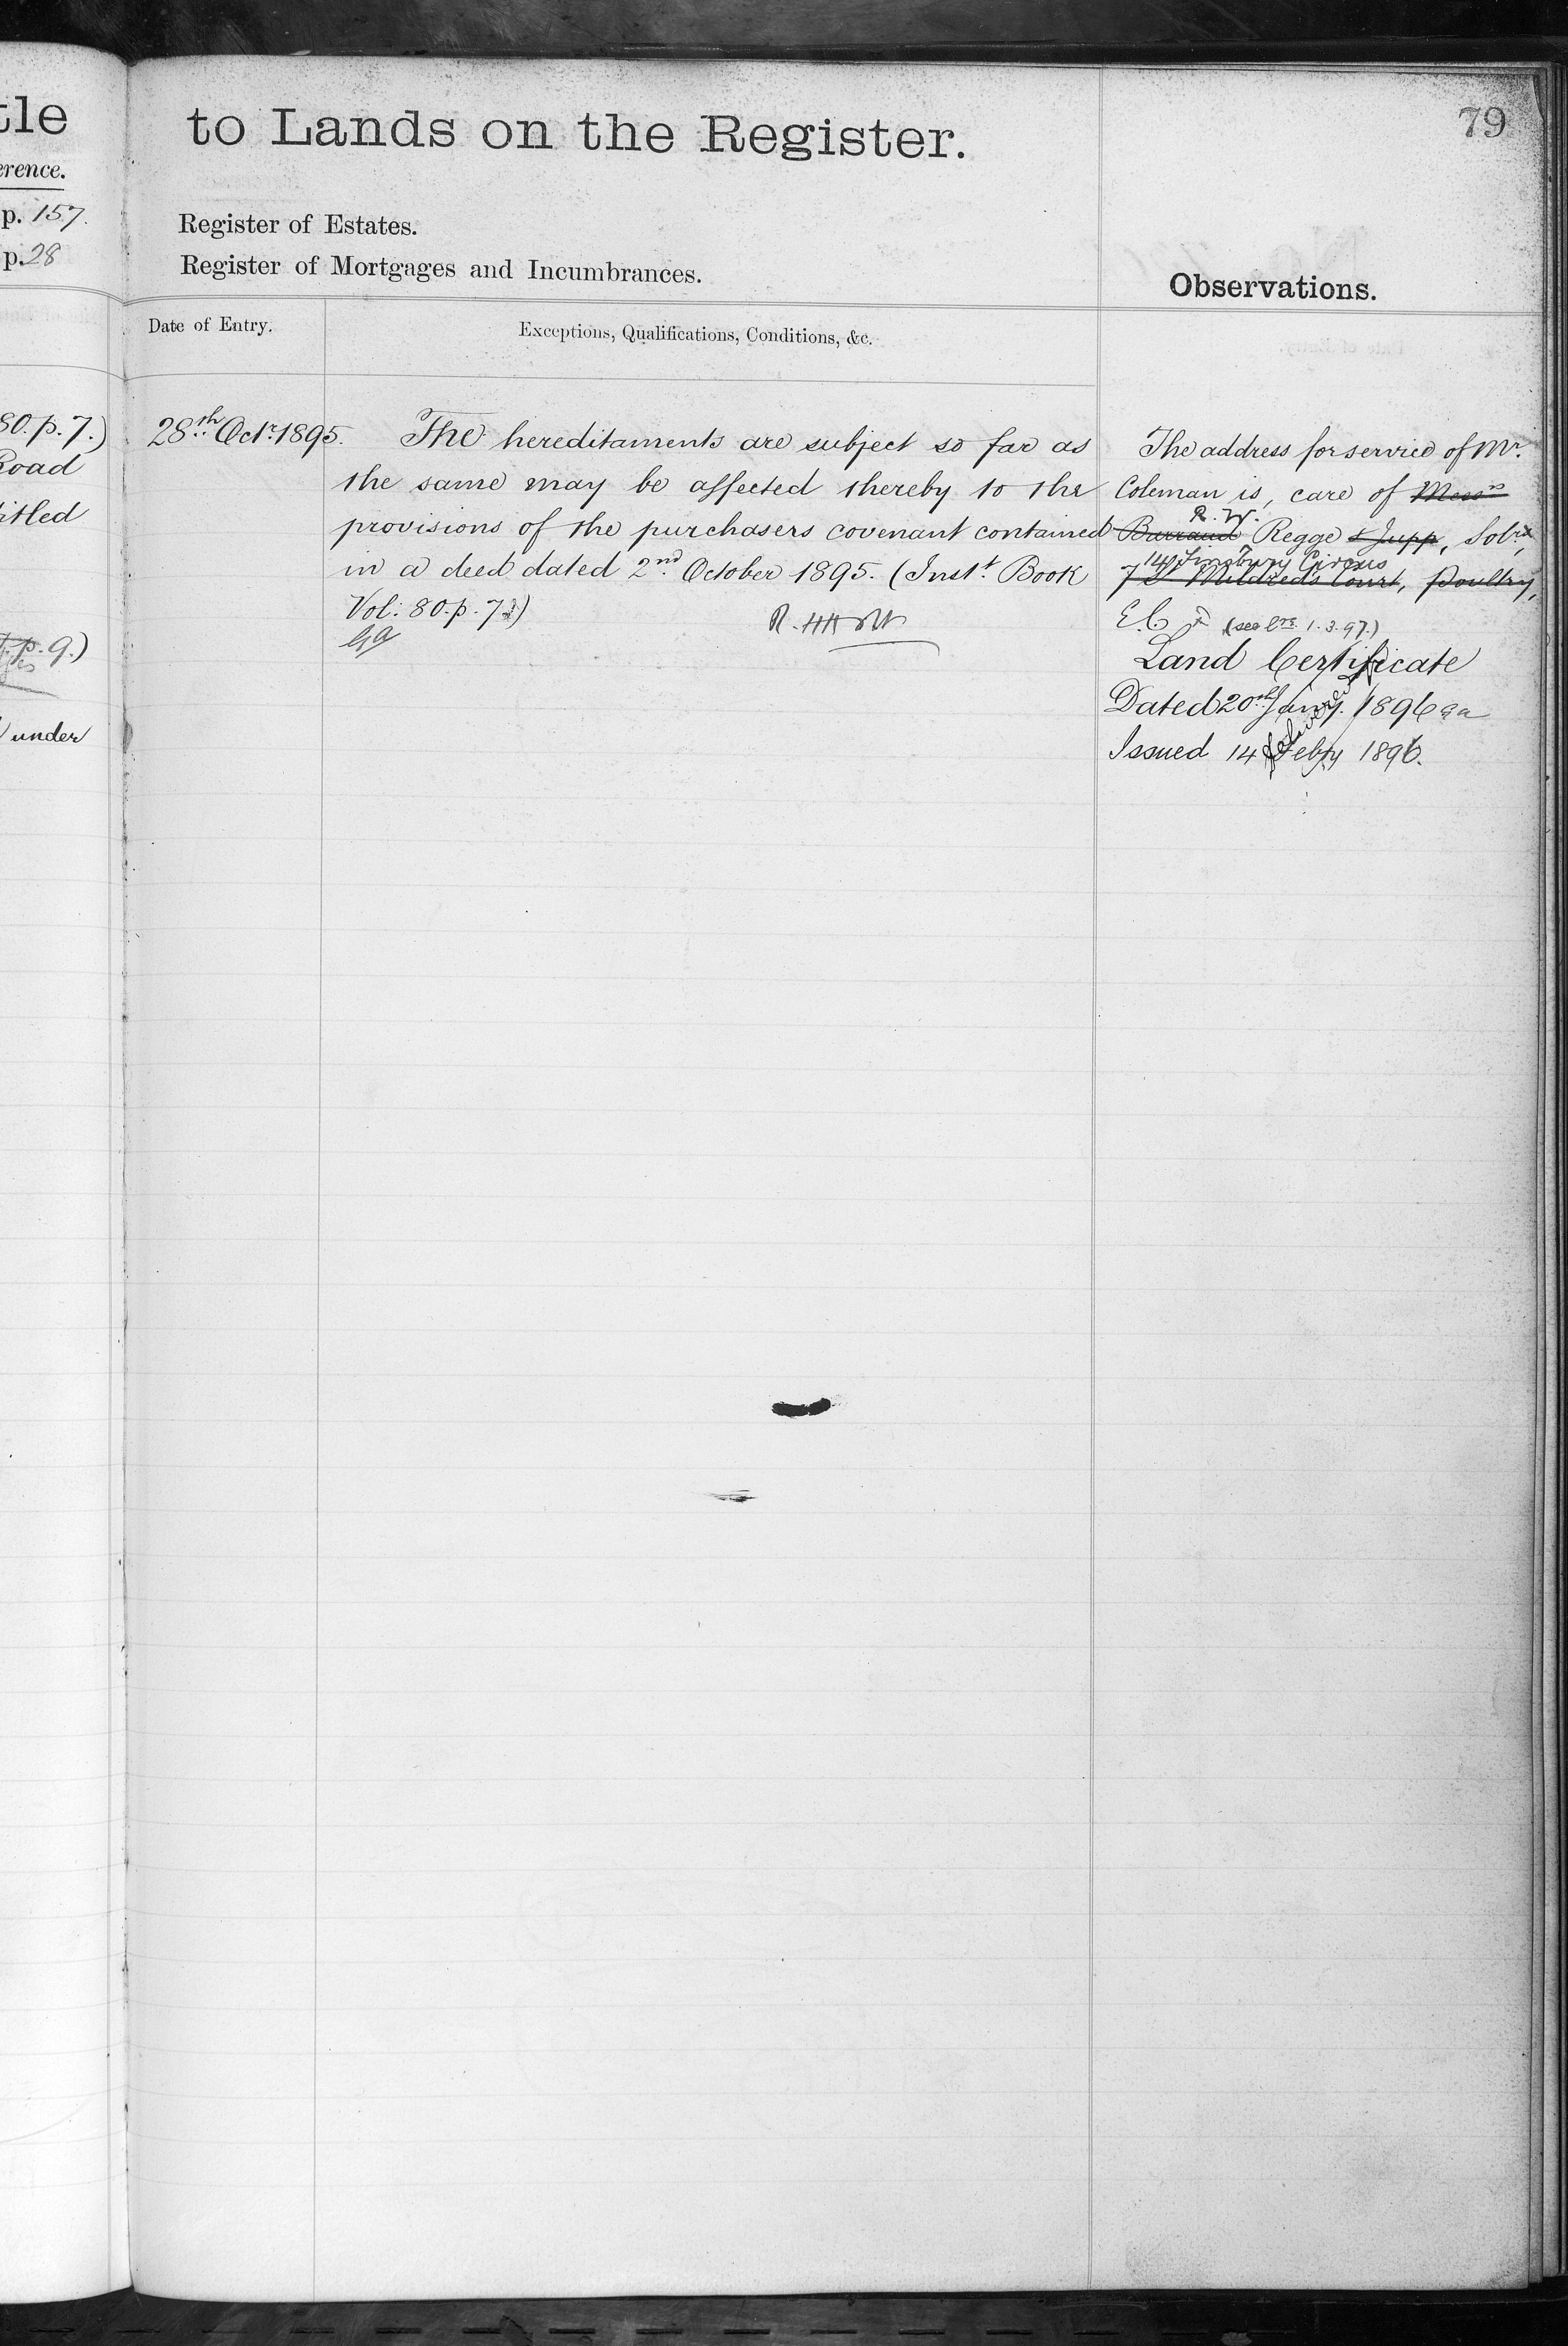 tle
erence.
p. 157.
p. 28
80. p. 7.)
Road
titled
p. 9.)
under
to Lands on the Register.
79
Register of Estates.
Register of Mortgages and Incumbrances.
Observations.
Date of Entry.
Exceptions, Qualifications, Conditions, &c.
28th Octr. 1895.
The hereditaments are subject so far as
the same may be affected thereby to the
provisions of the purchasers covenant contained
in a deed dated 2nd October 1895. (Inst. Book
Vol: 80. p. 7)
The address for service of Mr.
Coleman is, care of Messrs
R. W.
Barraud Regge & Jupp, Solrs,
14 Finsbury Circus
7 St Mildred's Court, Poultry,
E.C. (see lre. 1.3.97.)
Land Certificate
Dated 20th Jany. 1896
Issued 14 Feby 1896.